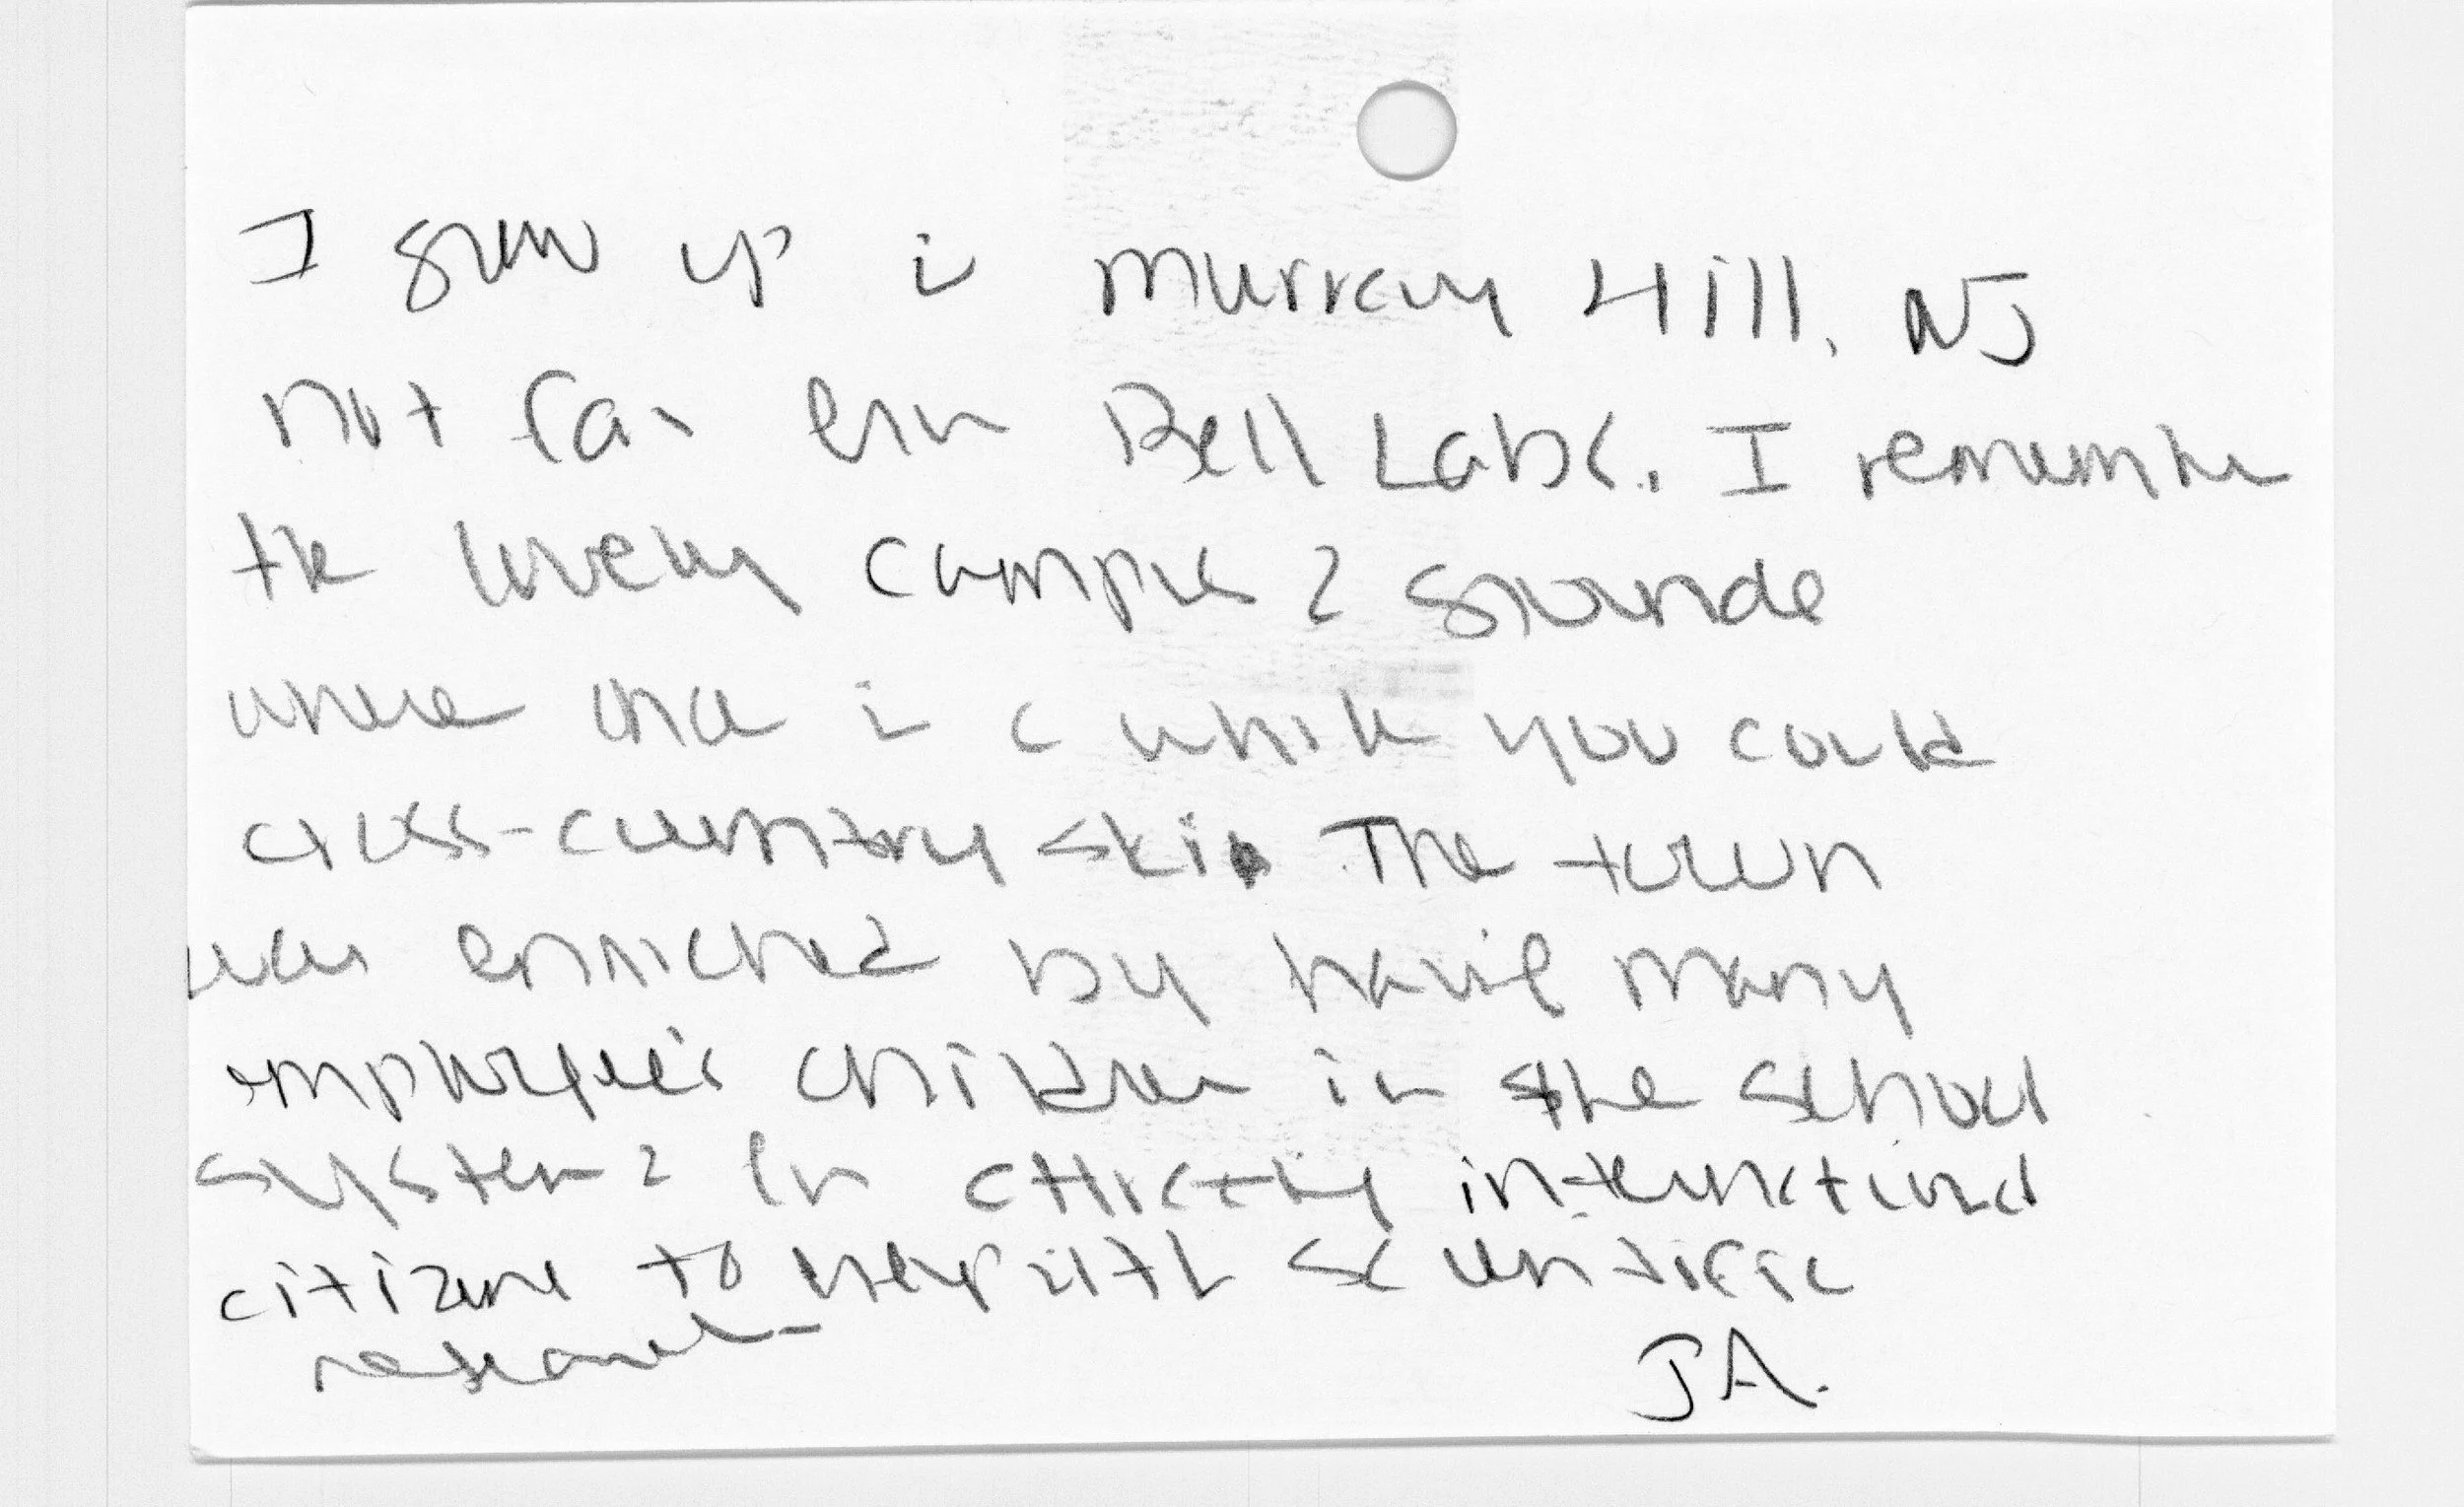 I grew up in Murray Hill, NJ
not far from Bell Labs. I remember
the lovely campus & grounds
where once in a while you could
cross-country ski. The town
was enriched by having many
employee's children in the school
system & for attracting international
citizens to help with scientific
research.
JA.